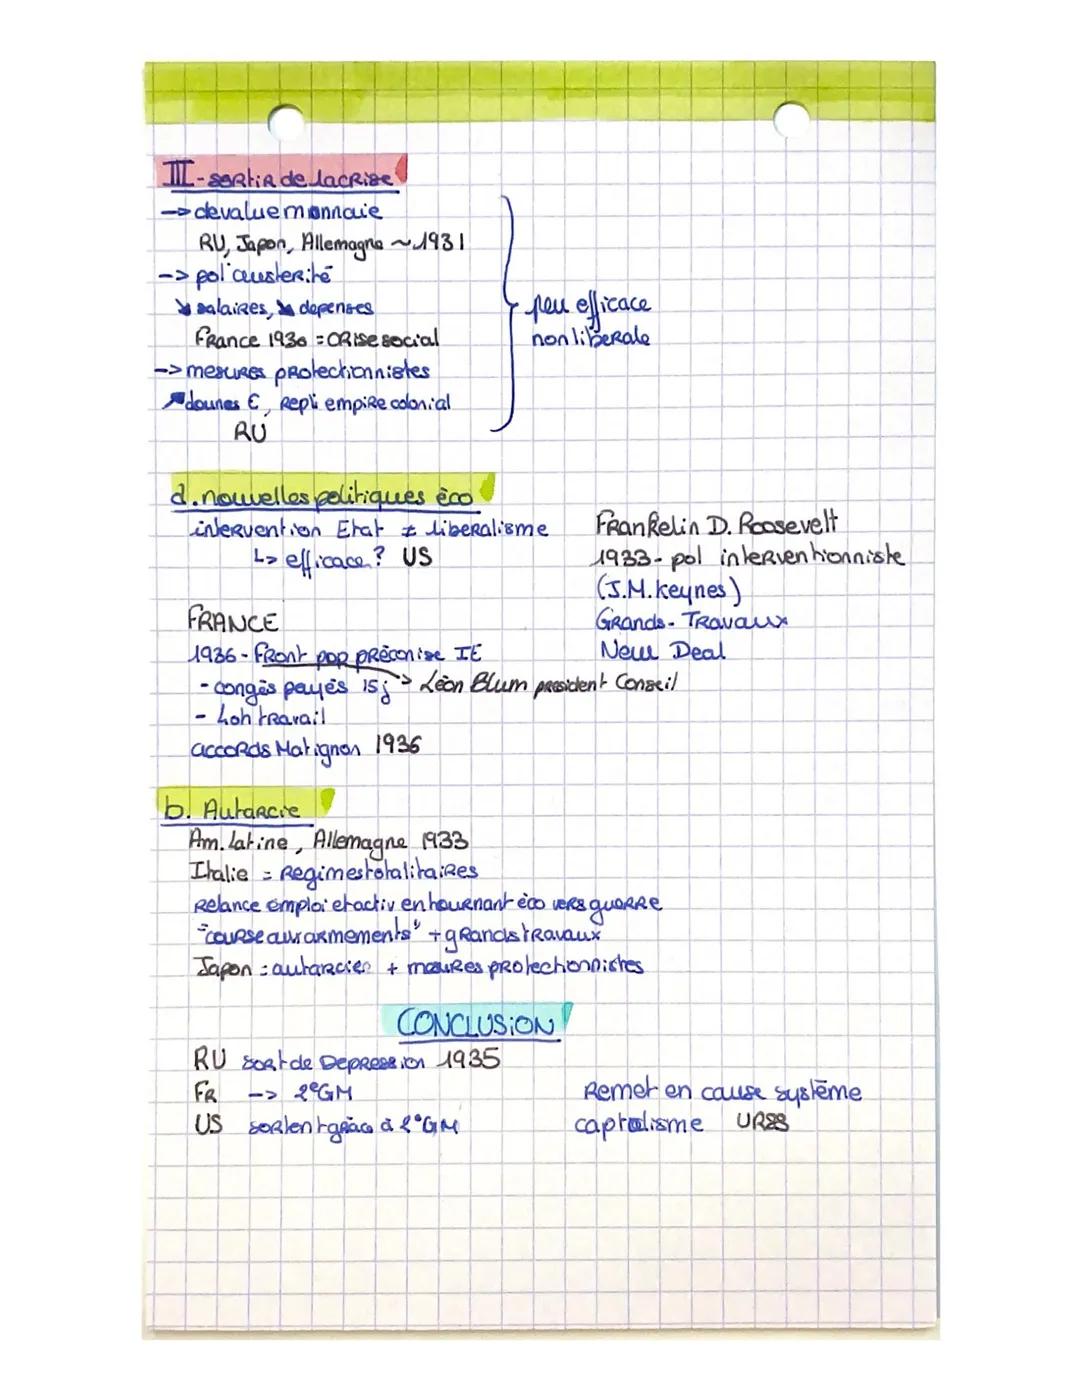 III - sortir de la crise
-> devalue monnaie
RU, Japon, Allemagne ~ 1931
-> pol° austerité
↘ salaires, ↘ depenses
France 1930 = CRise social
-> mesures protectionnistes
↗ dounes €, repli empire colonial
RU
peu efficace
non liberale
d. nouvelles politiques èco
intervention Etat ≠ liberalisme
↳ efficace? US
Frankelin D. Roosevelt
1933 - pol interventionniste
(J.M. Keynes)
Grands - Travaux
New Deal
FRANCE
1936 - Front pop préconise IE
- congès payés 15j -> Léon Blum president Conseil
- 40h travail
accords Matignon 1936
b. Autarcie
Am. latine, Allemagne 1933
Italie = Regimes totalitaires
Relance emploi et activ en tournant èco vers guerre
"course aux armements" + grands travaux
Japon : autarcie + mesures protectionnistes
CONCLUSION
RU sort de Depression 1935
FR -> 2°GM
US sortent grâce à 2°GM
Remet en cause système
captalisme URSS